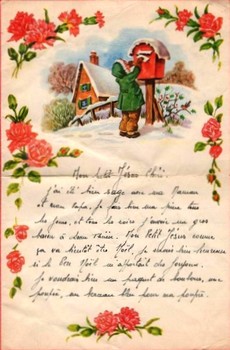 Mon petit Jésus chéri
j'ai été bien sage avec ma Maman
et mon Papa, je fais bien ma prière tous
les jours, et tous les soirs j'envoie un gros
baiser à deux mains. Mon Petit Jésus comme
ça va bientôt être Noël, je serais bien heureuse
si le Bon Noël m'apportait des joujoux.
Je voudrais bien un paquet de bonbons, une
poupée, un berceau bleu pour ma poupée.